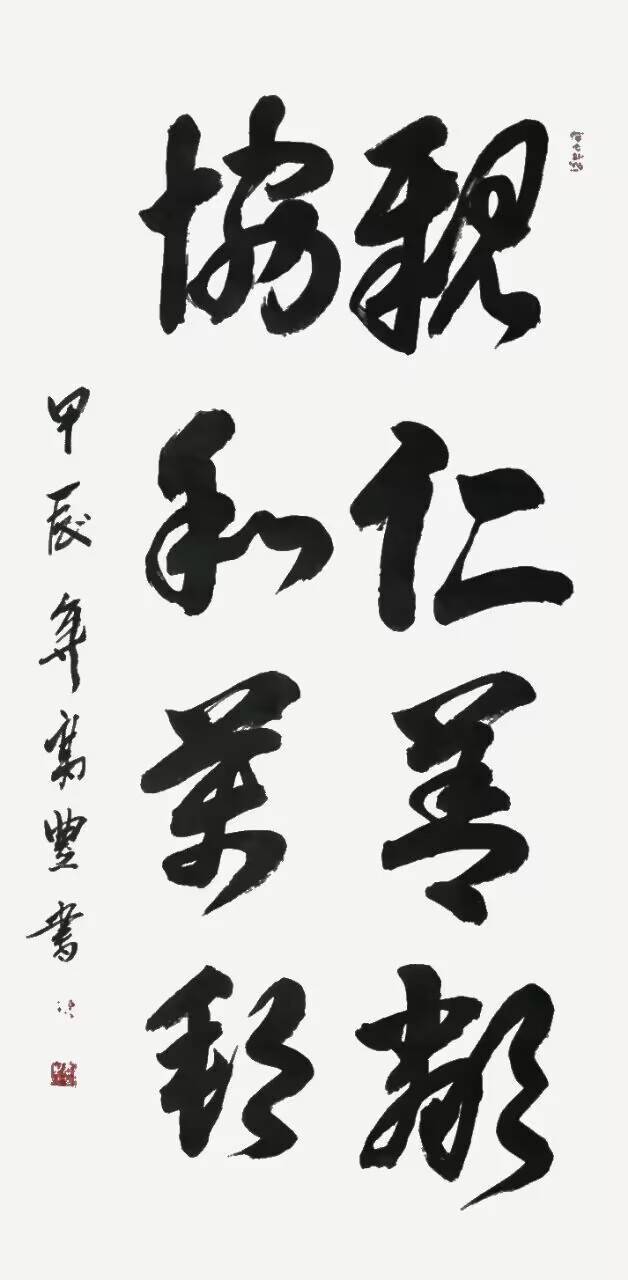 親仁善鄰
協和萬邦
甲辰年豐書